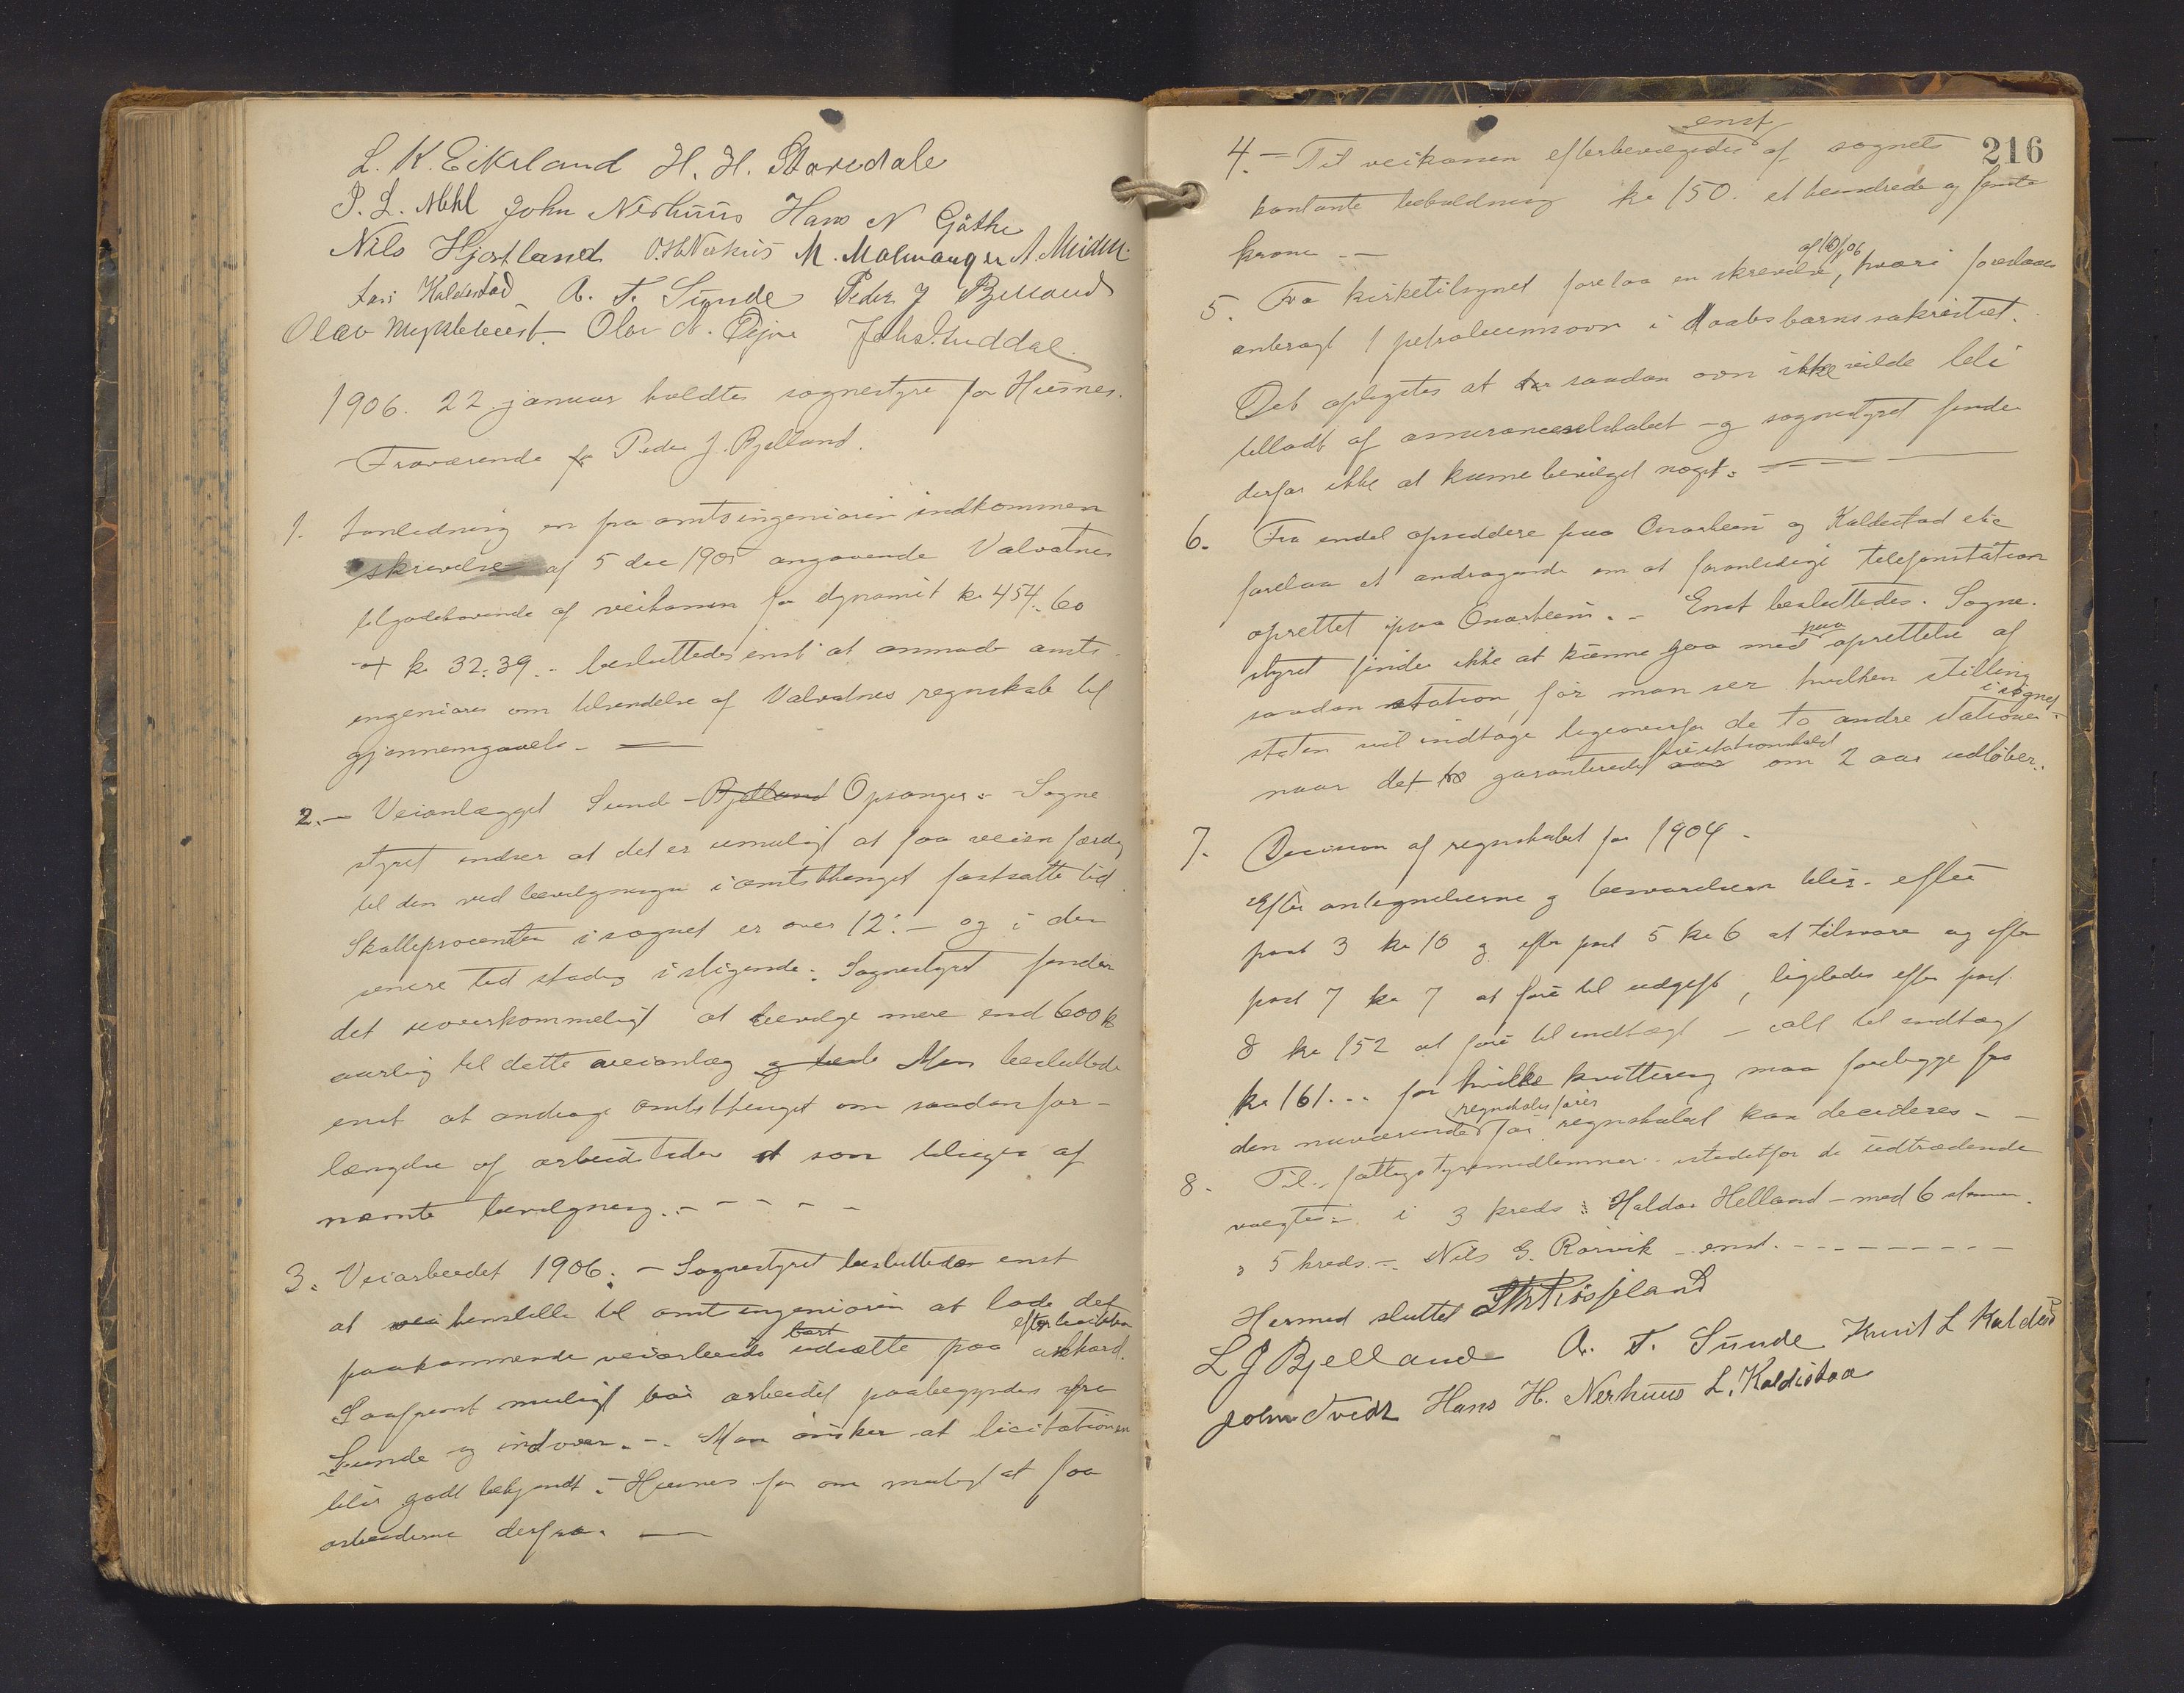 L. K. Eikeland H. H. Staredale
P. L. Mehl John Nerhuus Hans N Gøthe
Nils Hjortland O.H.Nerhus M. Malmanger
Lars Kaldestad A. T. Sunde Peder J Bjelland
Olav Myklebust. Olai A.
1906. 22 januar holdtes sognestyre for Husnes.
Fraværende for Peder J. Bjelland.
1. I anledning en fra amtsingeniøren indkommen
skrivelse af 5 dec 1905 angaaende Valvatnes
tilgodehavende af veikassen for dynamit kr 454.60
+ kr 32.39. - besluttedes enst at anmode amts-
ingeniøren om tilsendelse af Valvatnes regnskab til
gjennemgaaelse. -
2. - Veianlægget Sund - Bjelland Opsanger. - Sogne
styret indser at det er umuligt at faa veien færdig
til den ved bevilgningen i amtsthinget fastsatte tid.
Skatteprocenten i sognet er over 12. - og i den
senere tid stadig i stigende. Sognestyret finder
det uoverkommeligt at bevilge mere end 600 kr
aarlig til dette veianlæg og Man besluttede
enst at andrage amtsthinget om saadan for-
længelse af arbeidstiden som tilsiges af
nævnte bevilgning. - - - - -
3. Veiarbeidet 1906. - Sognestyret besluttedes enst
at henstille til amtsingeniøren at lade det
efter licitation
paakommende veiarbeide bort udsætte paa akkord.
Saafremt muligt bør arbeidet paabegyndes fra
Sunde og indover. - Man ønsker at licitationen
blir godt bekjendt i Husnes for om muligt at faa
arbeiderne derfra. -
216
enst
4. - Til veikassen efterbevilgedes af sognets
kontante beholdning kr 150. et hundrede og femti
krone - -
af 10/1 06
5. Fra kirketilsynet forelaa en skrivelse, hvori foreslaaes
anbragt 1 petroleumsovn i daabsbarnssakristiet.
Det oplystes at saadan ovn ikke vilde bli
tilladt af assuranceselskabet - og sognestyret finder
derfor ikke at kunne bevilget noget. -
6. Fra endel opsiddere paa Onarheim og Kaldestad etc
forelaa et andragende om at foranledige telefonstation
oprettet paa Onarheim. - Enst besluttedes. Sogne-
styret finder ikke at kunne gaa med paa oprettelse af
saadan station, før man ser hvilken stilling
i sognet
staten vil indtage ligeoverfor de to andre stationer
naar det garanterede fri stationshold om 2 aar udløber.
7. Decision af regnskabet for 1904 -
Efter antegnelserne og besvarelserne blir - efter
post 3 kr 10 og efter post 5 kr 6 at tilsvare og efter
post 7 kr 7 at føre til udgift, ligeledes efter post
8 kr 152 at føre til indtægt - ialt til indtægt
kr 161... for hvilke kvittering maa forelægge fra
regnskabsfører
den nuværende før regnskabet kan decideres - -
8. Til fattigstyremedlemmer istedetfor de udtrædende
valgtes i 3 kreds: Haldor Helland - med 6 stemmer.
" 5 kreds - Nils G. Rørvik - enst. - - - - - - - -
Hermed sluttet
L J Bjelland A. T. Sunde Knut L Kaldestad
John Tvedt Hans H. Nerhuus L. Kaldestad